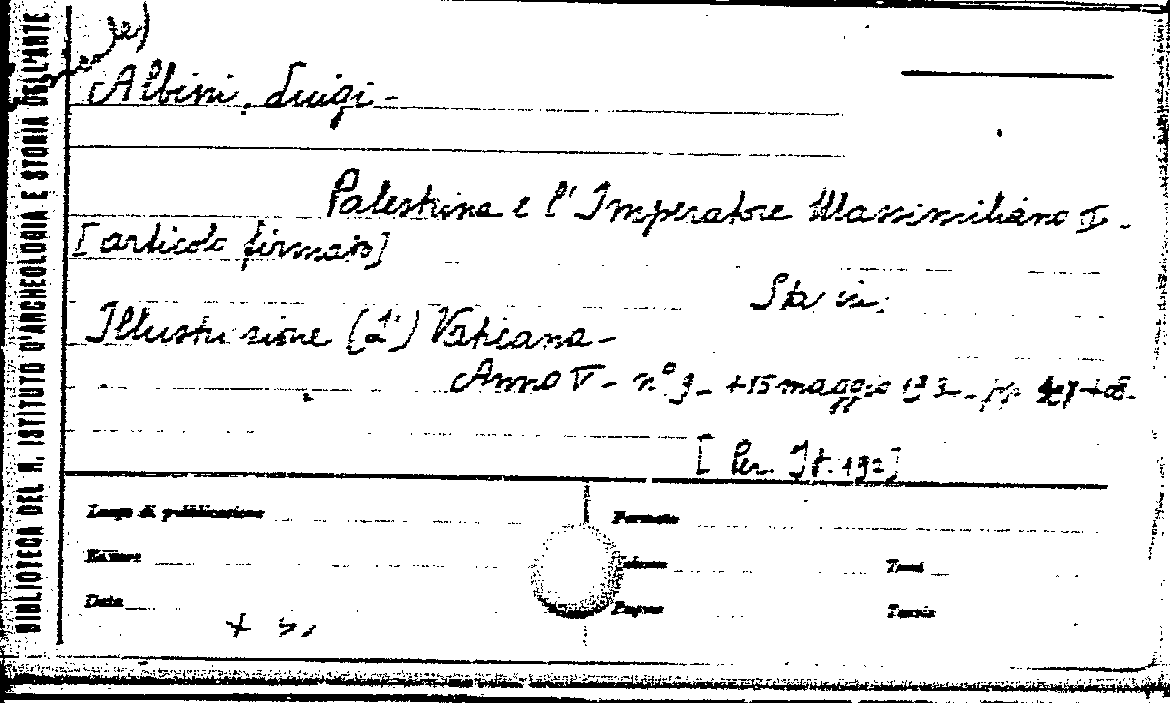 BIBLIOTECA DEL R. ISTITUTO D'ARCHEOLOGIA E STORIA DELL'ARTE
Albini, Luigi -
Palestrina e l'Imperatore Massimiliano II -
[articolo firmato]
Sta in:
Illustrazione (L') Vaticana -
Anno V - n° 9 - 15 maggio - pp.
[Per. It. 192]
Luogo di pubblicazione
Formato
Editore
Volume
Tomi
Data
Pagine
Tavole